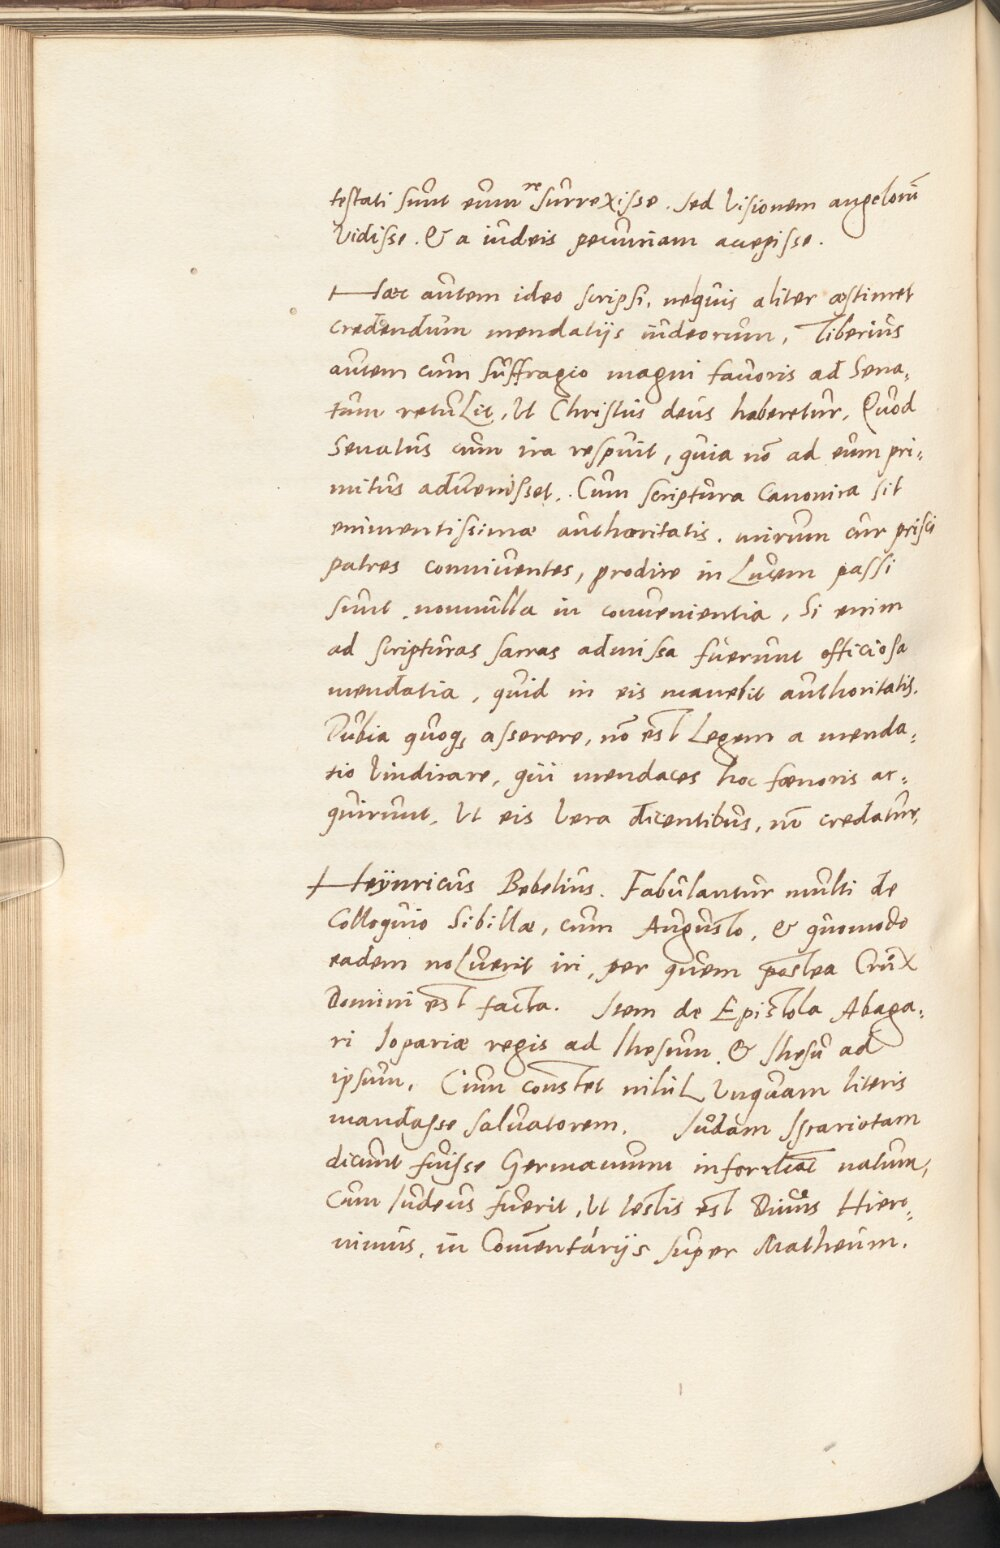 testati sunt eum resurrexisse. sed Visionem angelorū
Vidisse. & a iudeis pecuniam accepisse.
Haec autem ideo scripsi, nequis aliter aestimet
credendum mendatijs iudeorum, Tiberius
autem cum suffragio magni fauoris ad Sena,,
tum retulit, Ut Christus deus haberetur, Quod
Senatus cum ira respuit, quia nō ad eum pri,,
mitus aduenisset,. Cum scriptura Canonica sit
eminentissimae authoritatis. mirum cur prisci
patres conniuentes, prodire in Lucem passi
sunt, nonnulla in conuenientia, Si enim
ad scripturas sacras admissa fuerunt officiosa
mendatia, quid in eis manebit authoritatis.
Dubia quoq, asserere, nō est Legem a menda,,
tio Vindicare, qui mendaces hoc foenoris ac,,
quirunt, Ut eis Vera dicentibus, nō credatur,
Heÿnricus Bebelius. Fabulantur multi de
Colloquio Sibillae, cum Augusto, & quomodo
eadem noluerit iri, per quem postea Crux
Domini est facta. Item de Epistola Abaga,,
ri Iopariae regis ad Ihesum & Ihesū ad
ipsum, Cum constet nihil Unquam literis
mandasse saluatorem. Iudam Iscariotam
dicunt fuisse Germanum natum,
Cum Iudeus fuerit, Ut testis est Diuus Hiero,,
nimus, in Com̄entarijs super Matheum.